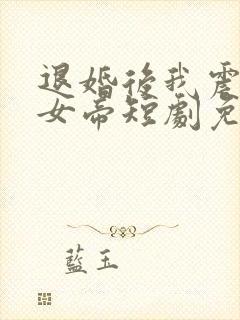 退婚後我震
女帝短劇免
藍玉